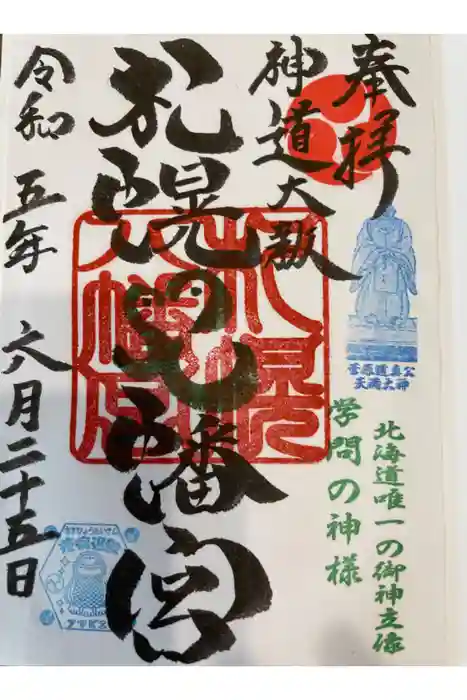 奉拝
神道大教
札幌八幡宮
令和五年六月二十五日
菅原道真公
天満大神
北海道唯一の御神立像
学問の神様
疫病退散
アマビエ